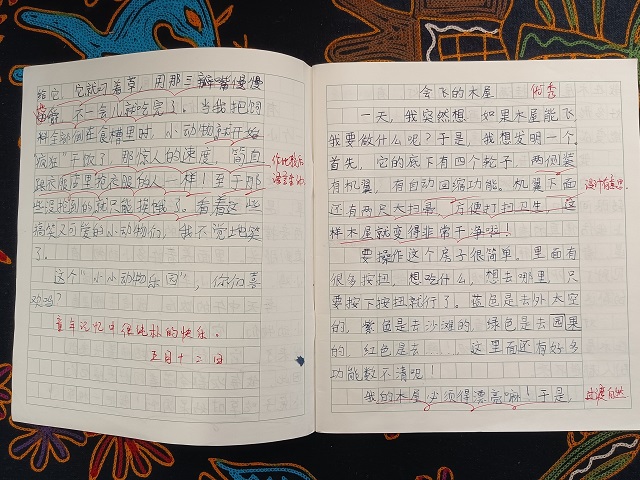 给它 它就叼着草，用那三瓣嘴慢慢
不一会儿就吃完了。当我把饲
料全部倒在食槽里时，小动物就开始
疯狂"干饭了，那惊人的速度，简直
跟衣服店里抢衣服的人一样！至于那
些没抢到的就只能挨饿了。看着这些
搞笑又可爱的小动物们，我不觉地笑
了。
这个"小小动物乐园"，你们喜
欢吗？
童年记忆中很纯朴的快乐。
五月十二日
会飞的木屋
优秀
一天，我突然想 如果木屋能飞
我要做什么呢？于是，我想发明一个。
首先，它的底下有四个轮子，两侧装
有机翼，有自动回缩功能。机翼下面
设计有意思
还有两只大扫帚，方便打扫卫生，这
样木屋就变得非常干净啦！
要操作这个房子很简单。里面有
很多按扭，想吃什么，想去哪里，只
要按下按扭就行了。蓝色是去外太空
的，紫色是去沙滩的，绿色是去园果
的，红色是去……这里面还有好多
功能数不清呢！
我的木屋必须得漂亮嘛！于是，
过渡自然